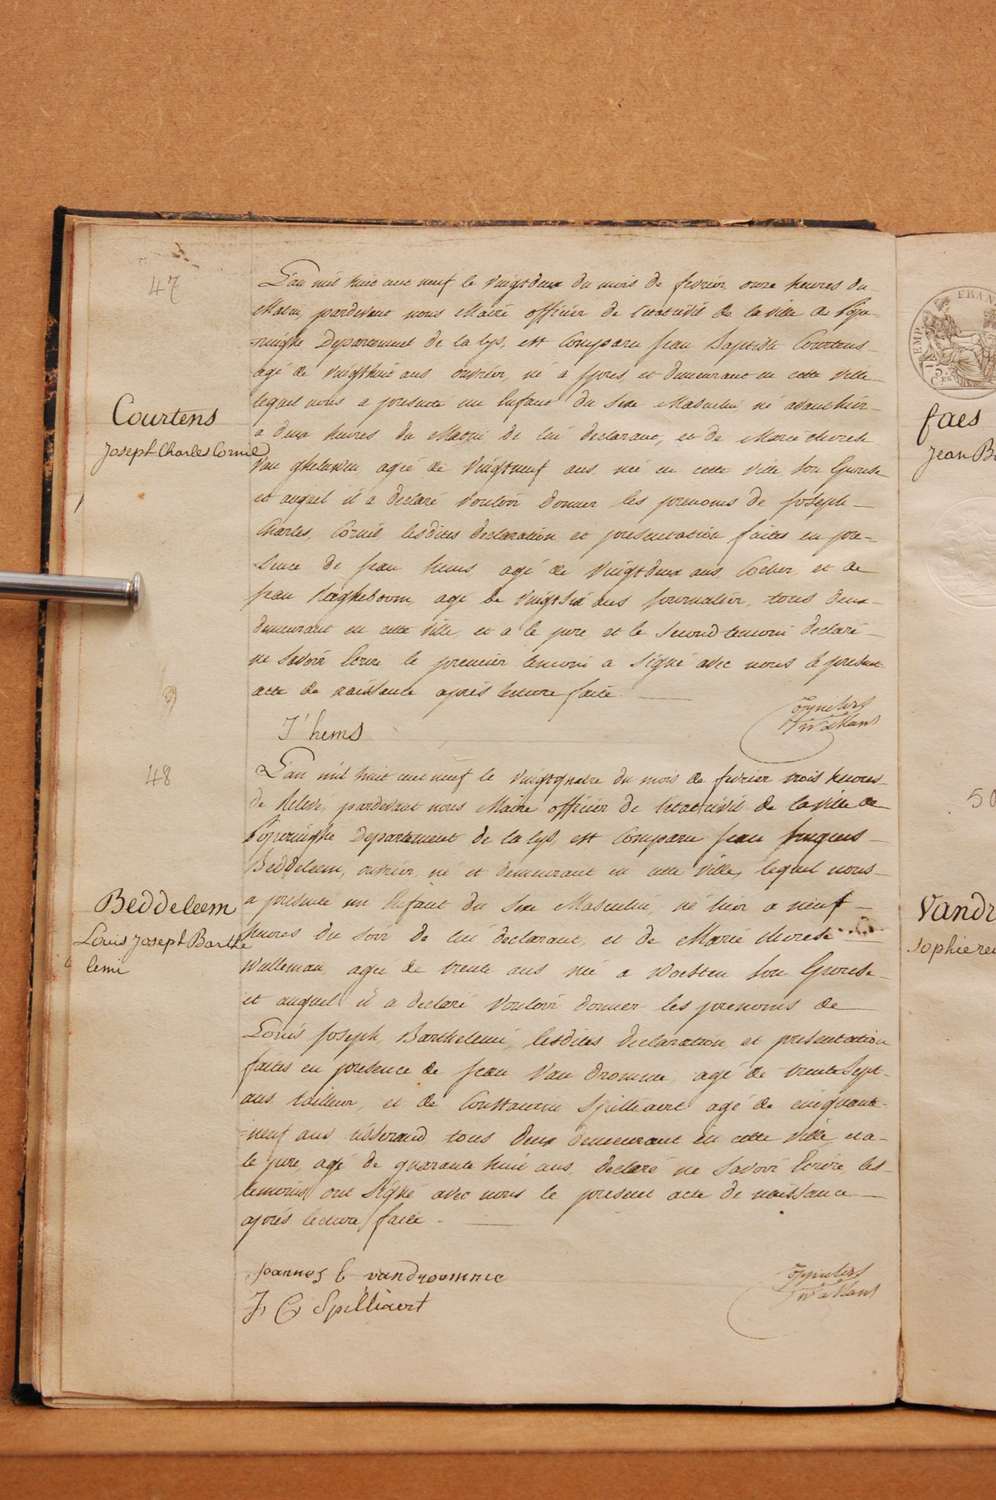 47
L'an mil huit cent neuf le vingtdeux du mois de fevrier onze heures du
Matin, pardevant nous Maire officier de l'etat civil de la ville de Pope-
ringhe Departement de la Lys, est comparu Jean Baptiste Courtens
agé de vingthuit ans ouvrier, né à Ypres et demeurant en cette ville
lequel nous a presenté un Enfant du Sexe Masculin né avanthier
a deux heures du Matin de lui declarant, et de Marie therese
Van ghelusen agée de vingtneuf ans, née en cette ville son Epouse
et auquel il a declaré vouloir donner les prenoms de Joseph
Charles, Cornil lesdites declaration et presentation faites en pre-
sence de Jean hems agé de vingtdeux ans et de
Jean agé de vingtsix ans journalier, tous deux
demeurant en cette ville, et a le pere et le second temoin declaré
ne savoir Ecrire le premier temoin a signé avec nous le present
acte de naissance après lecture faite
Courtens
Joseph Charles Cornil
J' hems
48
L'an mil huit cent neuf le vingtquatre du mois de fevrier trois heures
de relevé, pardevant nous Maire officier de l'etat civil de la ville de
Poperinghe Departement de la Lys, est comparu Jean français
Beddeleem, ouvrier, né et demeurant en cette ville, lequel nous
a presenté un Enfant du Sexe Masculin, né hier a neuf
heures du soir de lui declarant, et de Marie therese
Wulleman, agée de trente ans née a Woesten son Epouse
et auquel il a declaré vouloir donner les prenoms de
Louis Joseph, Barthelemi, lesdites declaration et presentation
faites en presence de Jean Van Dromme, agé de trente sept
ans tailleur, et de Constantin Spilliaert agé de cinquante
neuf ans tisserand tous deux demeurant en cette ville et a
le pere, agé de quarante huit ans, declaré ne savoir Ecrire les
temoins ont signé avec nous le present acte de naissance
après lecture faite.
Beddeleem
Louis Joseph Barthe
lemi
Joannes B vandroomme
J, C, Spilliaert
FRAN
TEMP
faes
Jean B
50
Vandr
Sophie